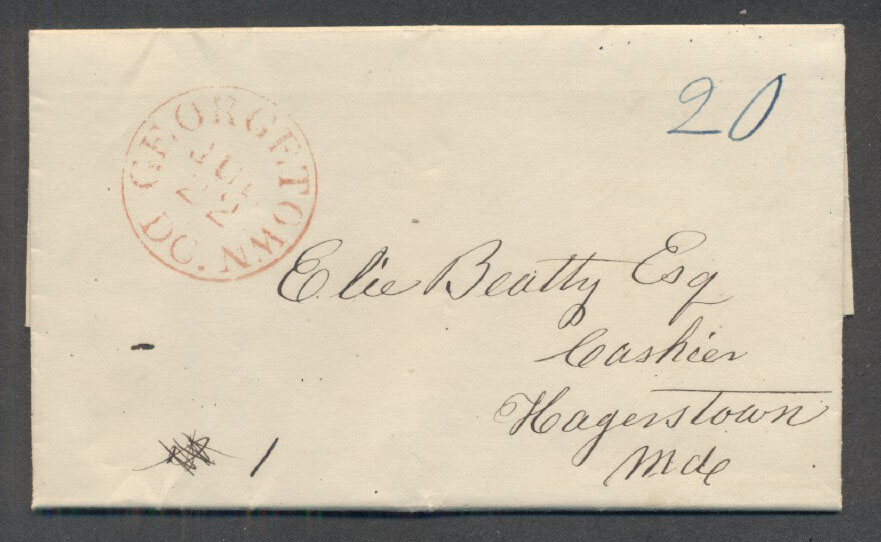 GEORGETOWN. DC
20
Elie Beatty Esq
Cashier
Hagerstown
Md
1